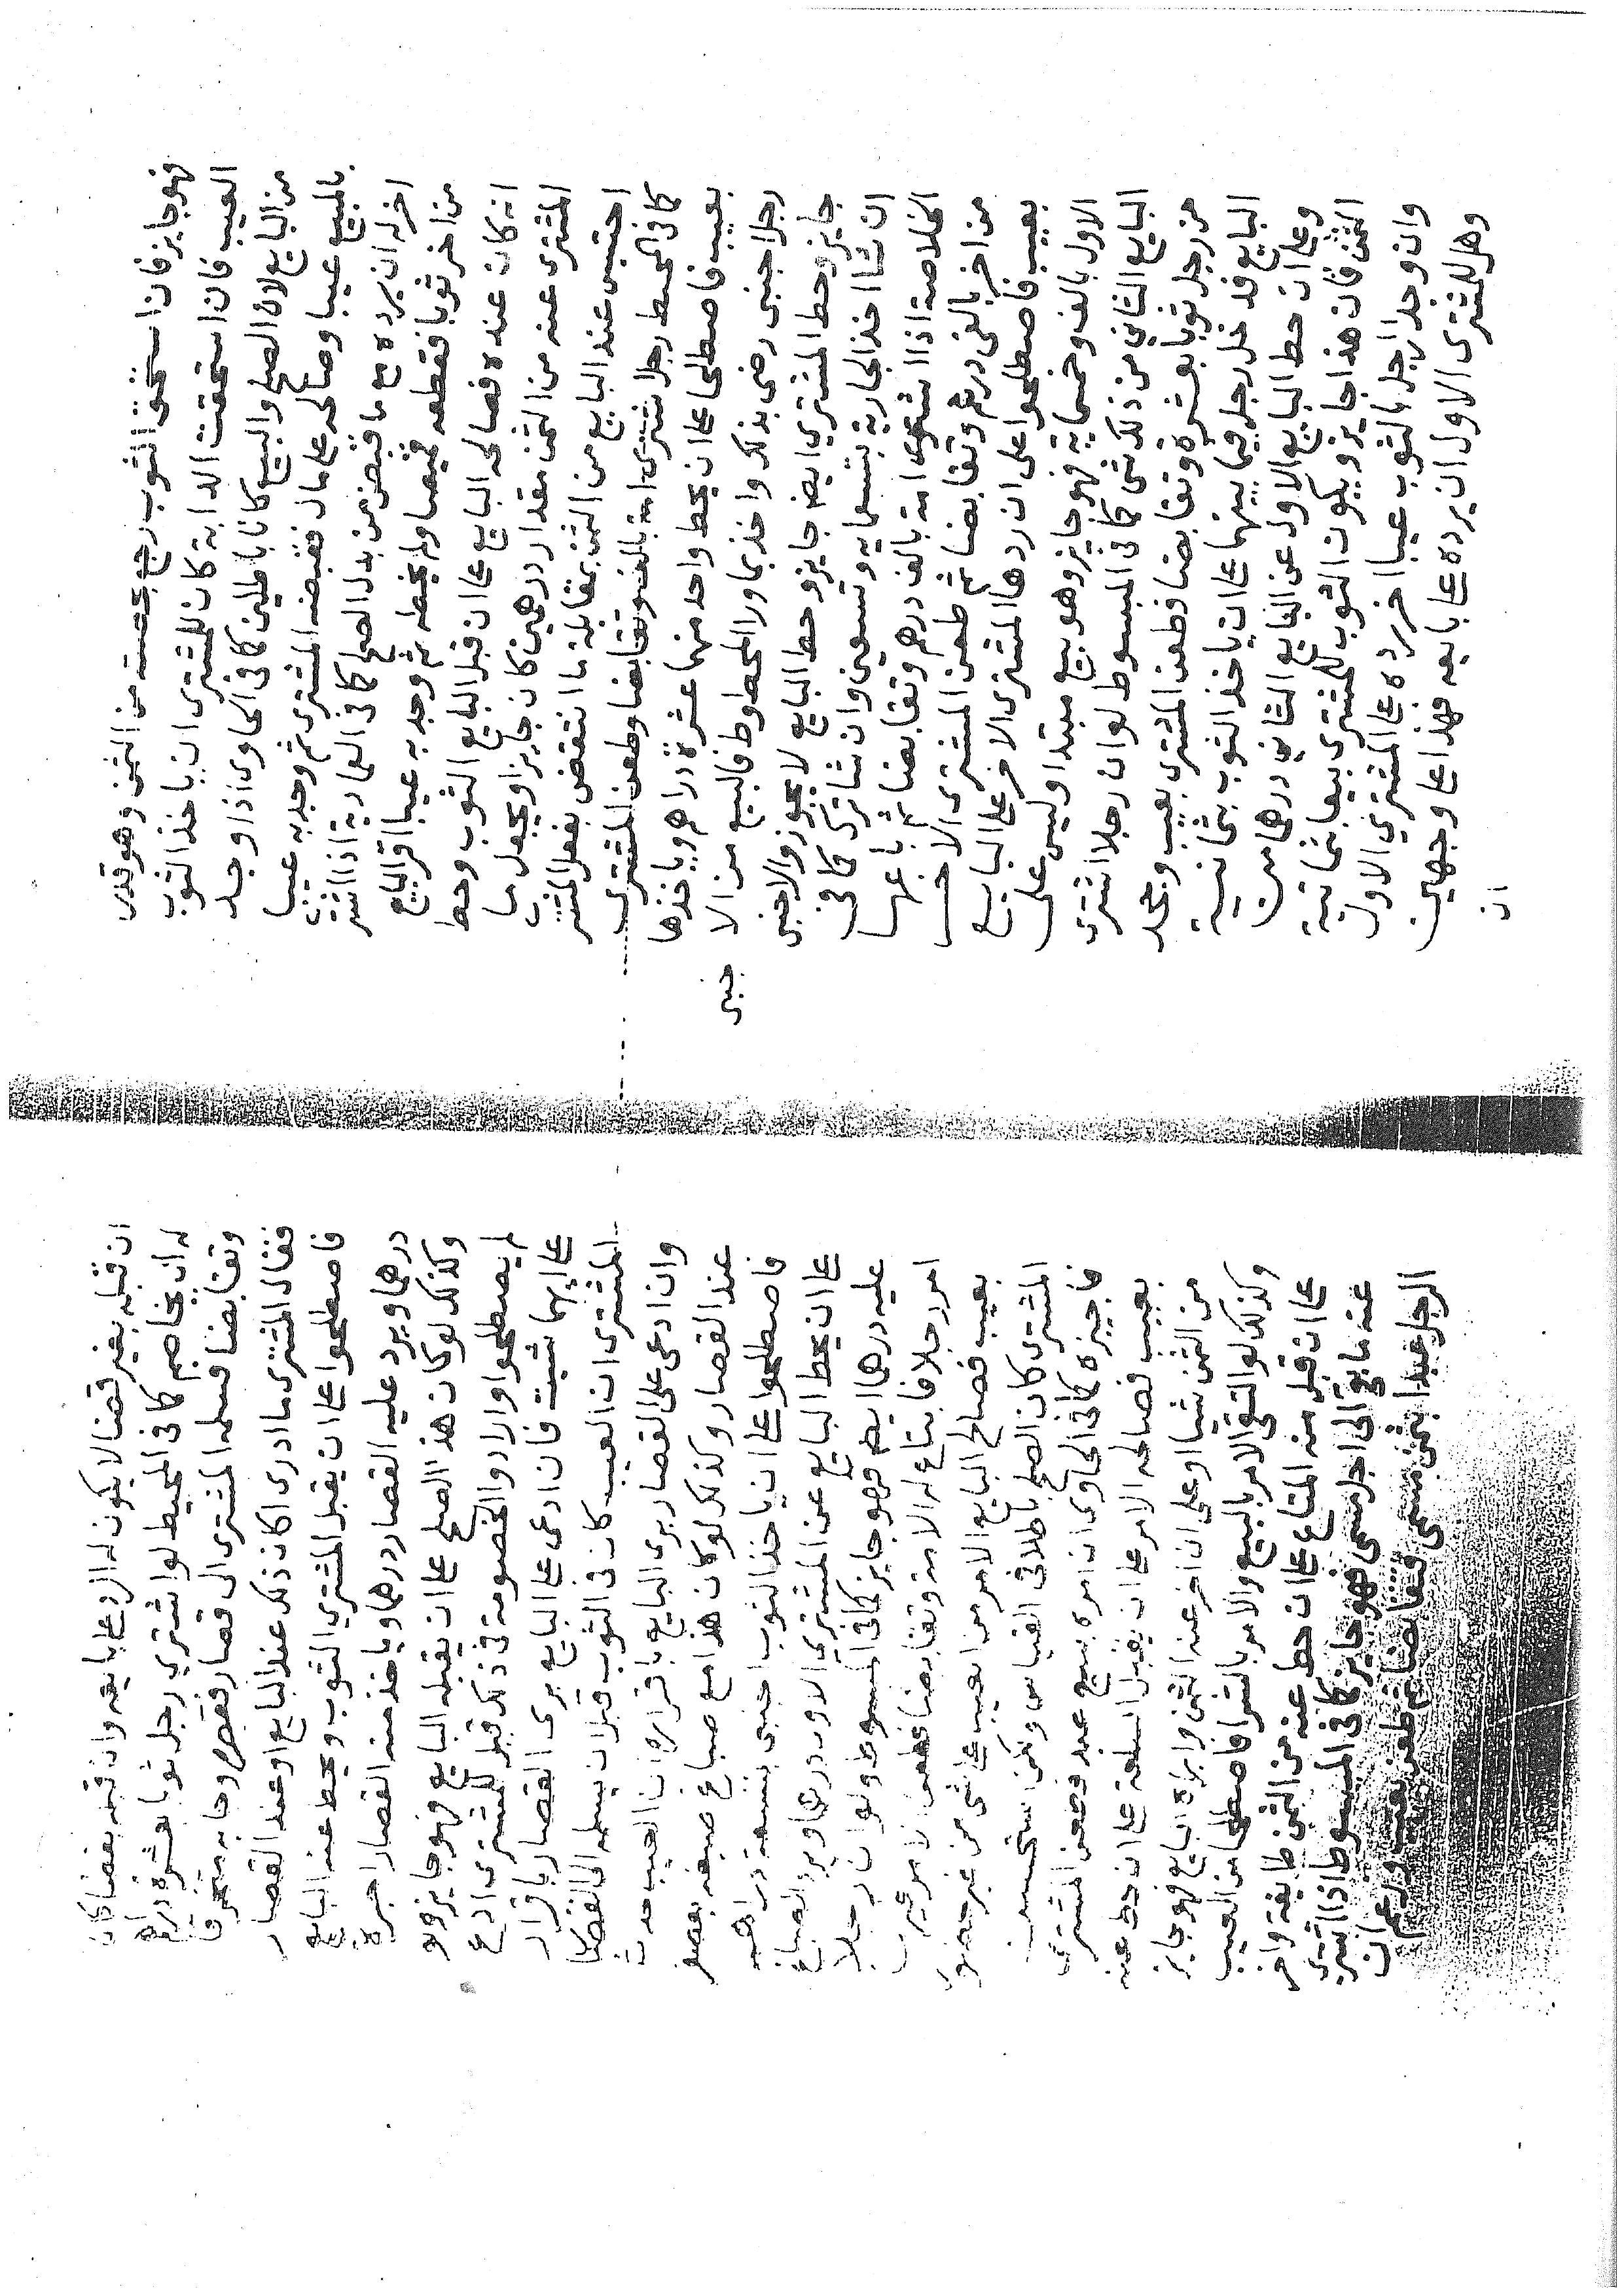 فهو جايز فان استحق الثوب رجع بحصته من الثمن وهو قدر
العيب فان استحقت الدابة كان للمشترى ان ياخذ الثوب
من البايع لان الصلح والبيع كانا باطلين كما فى الحاوى اذا وجد
بالمبيع عيبا وصالحه على مال فقبضه المشترى ثم وجد به عيبا
اخر له ان يرده مع ما قبض من بدل الصلح كما فى العمادية اذا اشتر
من اخر ثوبا فقطعه قميصا ولم يخيطه ثم وجد به عيبا اقر البايع
انه كان عنده فصالحه البايع على ان قبل البايع الثوب وحط
المشترى عنه من الثمن مقدار درهمين كان جايزا ويجعل ما
احتبس عند البايع من الثمن بمقابلة ما انتقض بفعل المشتر
كما فى المحيط رجل اشترى امة بالف وتقابضا وطعن المشترى
بعيب فاصطلحا على ان يحط واحد منهما عشرة دراهم وياخذها
رجل اجنبى رضى بذلك واخذ بما ورا المحطوط فالبيع من الا
جنبى
جايز وحط المشتري ايضا جايز وحط البايع لا يجوز والاجنبى
ان شا اخذ الجارية بتسعمايه وتسعين وان شا ترك كما فى
الخلاصة اذا اشترى امة بالف درهم وتقابضا ثم باعها
من اخر بالفى درهم وتقابضا ثم طعن المشترى الاخر
بعيب فاصطلحوا على ان ردها المشترى الاخر على البايع
الاول بالف وخمسماية فهو جايز وهو بيع مبتدا وليس على
البايع الثاني من ذلك شى كما فى المبسوط لو ان رجلا اشترى
من رجل ثوبا بعشرة وتقابضا فطعن المشترى بعيب وجحد
البايع فدخل رجل فيما بينهما على ان ياخذ الثوب بثمانية
وعلى ان حط البايع الاول عن البايع الثاني درهما من
الثمن فان هذا جايز ويكون الثوب للمشترى بيعا بثمانية
وان وجد الرجل بالثوب عيبا اخر رده على المشتري الاول
وهل للمشترى الاول ان يرده على بايعه فهذا على وجهين
ان
ان قبله بغير قضا لا يكون له الرد على بايعه وان قبله بقضا كان
له ان يخاصم كما فى المحيط لو اشتري رجل ثوبا بعشرة دراهم
وتقابضا فسلمه المشترى الى قصار فقصره وجا به متخرقا
فقال المشترى ما ادرى اكان ذلك عند البايع او عند القصار
فاصطلحوا على ان يقبل المشتري الثوب ويحط عنه البايع
درهما ويرد عليه القصار درهما وياخذ منه القصار اجره
وكذلك لو كان هذا الصلح على ان يقبله البايع فهو جايز ولو
لم يصطلحوا وارادوا الخصومة فى ذلك قيل للمشترى ادع
على ايهما شيت فان ادعى على البايع برى القصار باقرار
المشترى ان العيب كان فى الثوب قبل ان يسلمه الى القصار
وان ادعى على القصار برى البايع باقراره ان العيب حدث
عند القصار وكذلك لو كان هذا مع صباغ صبغه بعصفر
فاصطلحوا على ان ياخذ الثوب اجنبى بتسعة دراهم
على ان يحط البايع عن المشتري الاول درهما ويرد الصباغ
عليه درهما ايضا فهو جايز كما فى المبسوط ولو ان رجلا
امر رجلا فابتاع له امة وتقابضا فطعن الامر
بعيب فصالح البايع الامر من العيب على شى من غير حضور
المشترى كان الصلح باطلا فى القياس ولكن استحسن
فاجيزه كما فى الحاوى ان امره ببيع عبد فطعن المشترى
بعيب فصالحه الامر على ان يقبل السلعة على ان حط عنه
من الثمن شيا او على ان اخر عنه الثمن وابراه البايع فهو جايز
وكذلك لو التقى الامر بالبيع والامر بالشرا فاصطلحا من العيب
على ان قبل منه المتاع على ان حط عنه من الثمن طايفة واخر
عنه ما بقى الى اجل مسمى فهو جايز كما فى المبسوط اذا اشترى
الرجل عبدا بثمن مسمى وتقابضا ثم طعن بعيب وزعم ان